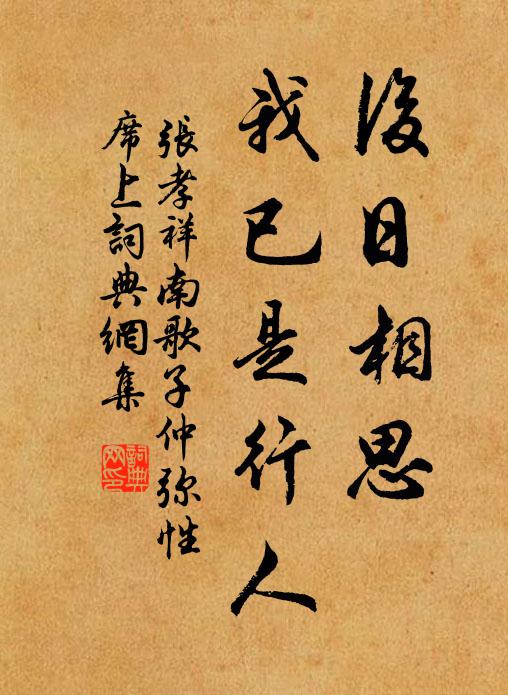 後日相思
我已是行人
張孝祥南歌子仲弥性
席上詞典網集
詞典
网印